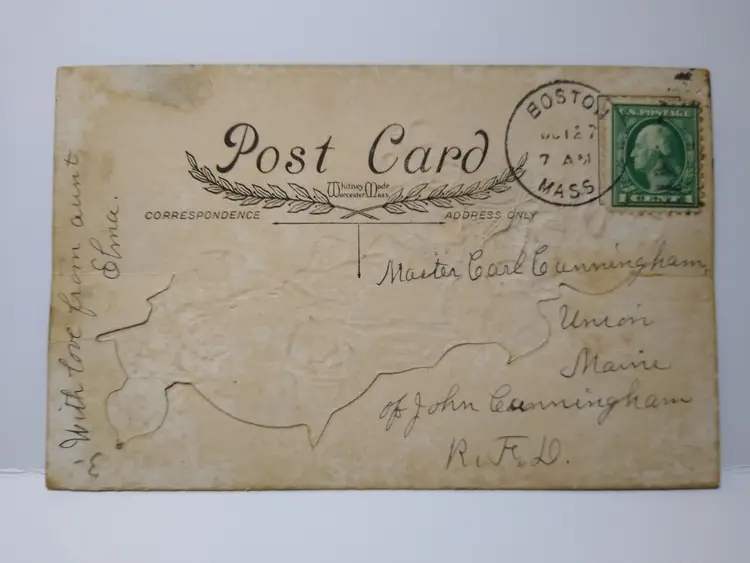 Post Card
Whitney Made
Worcester Mass.
CORRESPONDENCE
ADDRESS ONLY
BOSTON
OCT 27
7 AM
MASS
U.S. POSTAGE
CENT
Master Carl Cunningham,
Union
Maine
of John Cunningham
R.F.D.
With love from aunt
Elma.